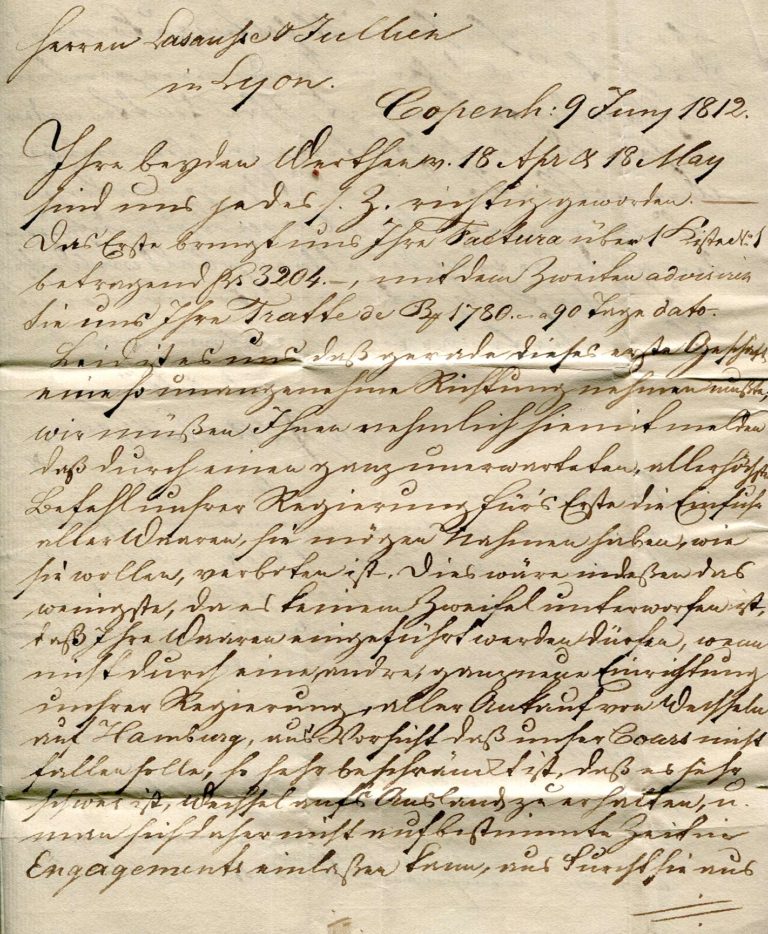 Herren Lasausse & Jullien
in Lyon.
Copenh: 9 Juny 1812.
Ihre beyden Werthen v. 18 Apr & 18 May
sind uns jedes s. Z. richtig geworden. —
Das Erste bringt uns Ihre Factura über 1 Kiste N: 1
betragend 3204.–, mit dem Zweiten advisiren
Sie uns Ihre Tratte de 1780. a 90 Tage dato.
Leid ist es uns daß gerade dieses erste Geschäft
eine so unangenehme Richtung nehmen mußte,
wir müßen Ihnen nehmlich hiemit melden
daß durch einen ganz unerwarteten, allerhöchsten
Befehl unsrer Regierung für's Erste die Einfuhr
aller Waaren, sie mögen Nahmen haben, wie
sie wollen, verboten ist. Dies wäre indeßen das
wenigste, da es keinem Zweifel unterworfen ist,
daß Ihre Waaren eingeführt werden dürfen, wenn
nicht durch eine andre, ganz neue Einrichtung
unsrer Regierung, aller Ankauf von Wechseln
auf Hamburg, aus Vorsicht daß unser Cours nicht
fallen solle, so sehr beschränkt ist, daß es sehr
schwer ist, Wechsel aufs Ausland zu erhalten, u.
man sich daher nicht auf bestimmte Zeit in
Engagements einlaßen kann, aus Furcht sie aus